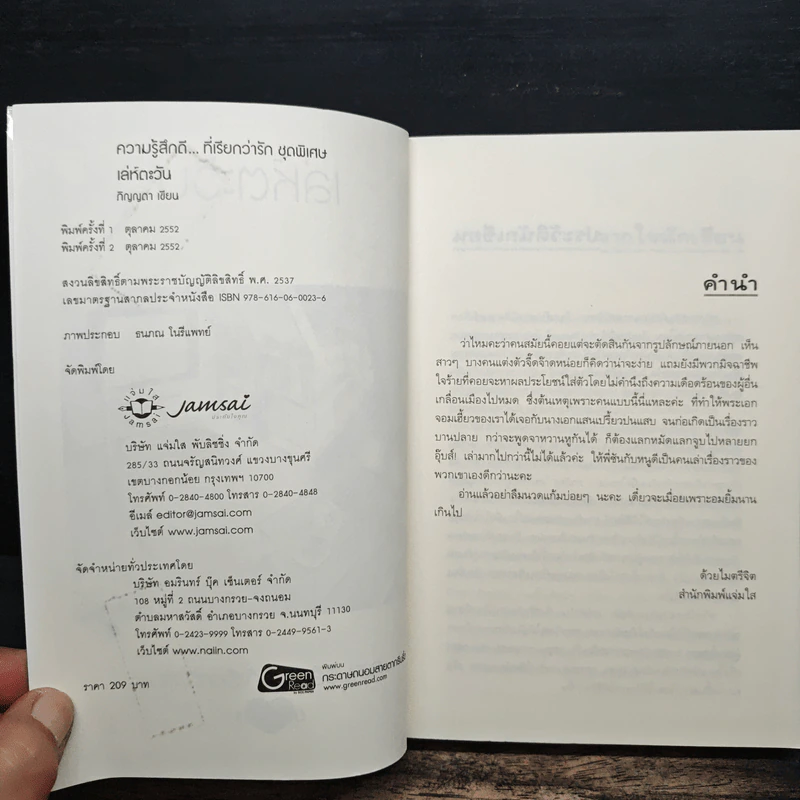 ความรู้สึกดี... ที่เรียกว่ารัก ชุดพิเศษ
เล่ห์ตะวัน
ภิญญดา เขียน
พิมพ์ครั้งที่ 1 ตุลาคม 2552
พิมพ์ครั้งที่ 2 ตุลาคม 2552
สงวนลิขสิทธิ์ตามพระราชบัญญัติลิขสิทธิ์ พ.ศ. 2537
เลขมาตรฐานสากลประจำหนังสือ ISBN 978-616-06-0023-6
ภาพประกอบ ธนภณ โนรีแพทย์
จัดพิมพ์โดย
แจ่มใส
Jamsai
Jamsai
บริษัท แจ่มใส พับลิชชิ่ง จำกัด
285/33 ถนนจรัญสนิทวงศ์ แขวงบางขุนศรี
เขตบางกอกน้อย กรุงเทพฯ 10700
โทรศัพท์ 0-2840-4800 โทรสาร 0-2840-4848
อีเมล์ editor@jamsai.com
เว็บไซต์ www.jamsai.com
จัดจำหน่ายทั่วประเทศโดย
บริษัท อมรินทร์ บุ๊ค เซ็นเตอร์ จำกัด
108 หมู่ที่ 2 ถนนบางกรวย-จงถนอม
ตำบลมหาสวัสดิ์ อำเภอบางกรวย จ.นนทบุรี 11130
โทรศัพท์ 0-2423-9999 โทรสาร 0-2449-9561-3
เว็บไซต์ www.naiin.com
ราคา 209 บาท
Green Read
พิมพ์บน
กระดาษถนอมสายตากรีนรี้ด
www.greenread.com
คำนำ
ว่าไหมคะว่าคนสมัยนี้คอยแต่จะตัดสินกันจากรูปลักษณ์ภายนอก เห็น
สาวๆ บางคนแต่งตัวจี๊ดจ๊าดหน่อยก็คิดว่าน่าจะง่าย แถมยังมีพวกมิจฉาชีพ
ใจร้ายที่คอยจะหาผลประโยชน์ใส่ตัวโดยไม่คำนึงถึงความเดือดร้อนของผู้อื่น
เกลื่อนเมืองไปหมด ซึ่งต้นเหตุเพราะคนแบบนี้นี่แหละค่ะ ที่ทำให้พระเอก
จอมเฮี้ยวของเราได้เจอกับนางเอกแสนเปรี้ยวปนแสบ จนก่อเกิดเป็นเรื่องราว
บานปลาย กว่าจะพูดจาหวานหูกันได้ ก็ต้องแลกหมัดแลกจูบไปหลายยก
อุ๊บส์! เล่ามากไปกว่านี้ไม่ได้แล้วค่ะ ให้พี่ซันกับหนูดีเป็นคนเล่าเรื่องราวของ
พวกเขาเองดีกว่านะคะ
อ่านแล้วอย่าลืมนวดแก้มบ่อยๆ นะคะ เดี๋ยวจะเมื่อยเพราะอมยิ้มนาน
เกินไป
ด้วยไมตรีจิต
สำนักพิมพ์แจ่มใส